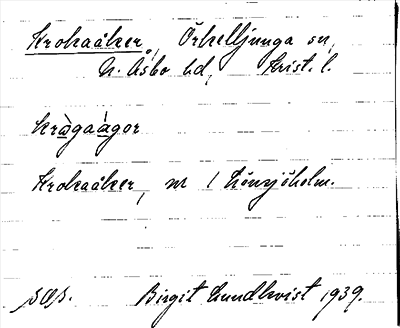 Krokaåker, Örkelljunga sn,
N. Åsbo hd, Krist. l.
kràgaàgor
Krokaåker, nr 1 Lönsjöholm.
SOS. Birgit Lundkvist 1939.